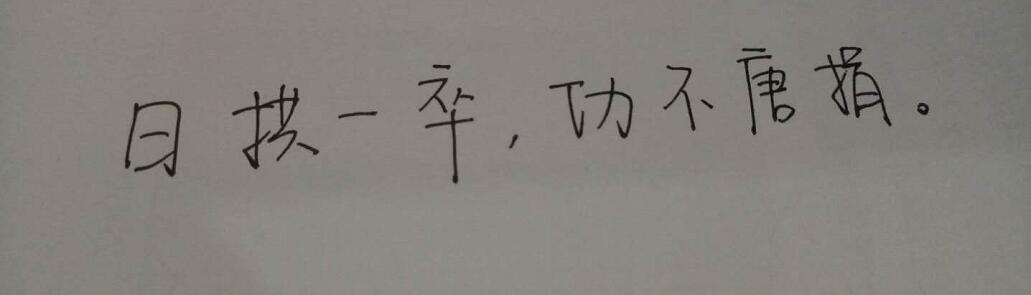 日拱一卒，功不唐捐。